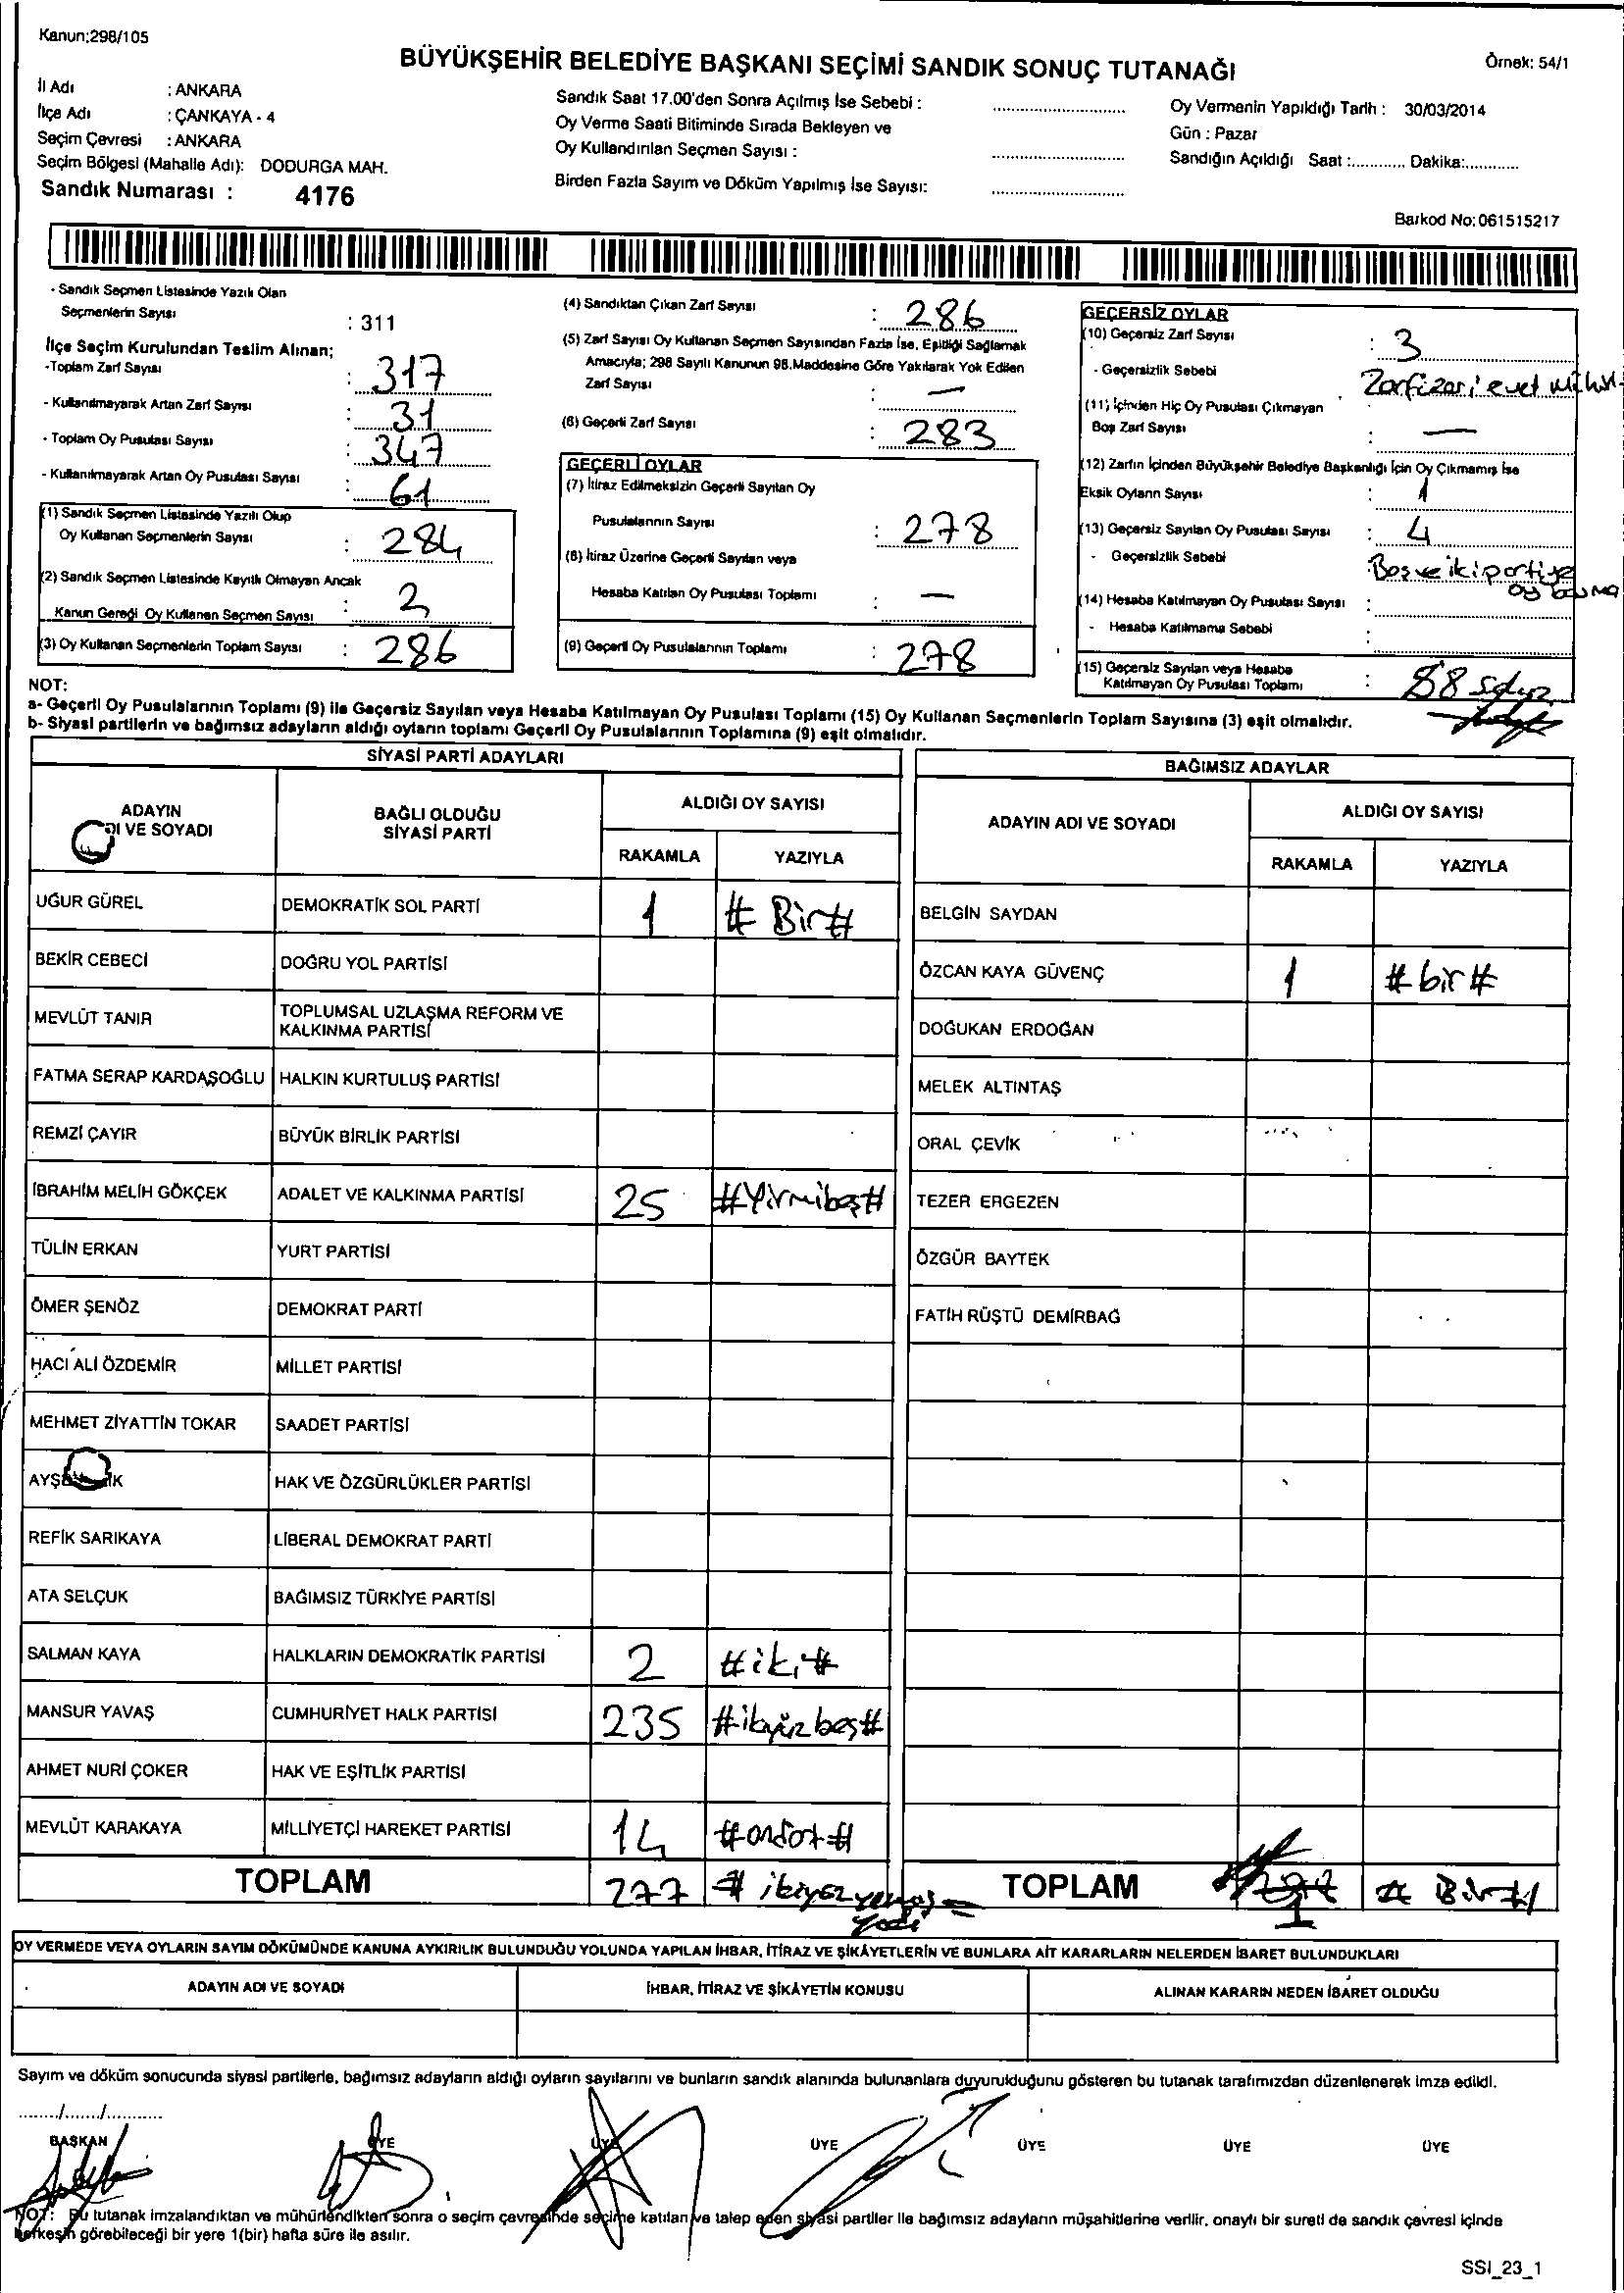 Kanun;298/105
BÜYÜKŞEHİR BELEDİYE BAŞKANI SEÇİMİ SANDIK SONUÇ TUTANAĞI
Örnek: 54/1
İl Adı : ANKARA
İlçe Adı : ÇANKAYA - 4
Seçim Çevresi : ANKARA
Seçim Bölgesi (Mahalle Adı): DODURGA MAH.
Sandık Numarası : 4176
Sandık Saat 17.00'den Sonra Açılmış İse Sebebi :
Oy Verme Saati Bitiminde Sırada Bekleyen ve
Oy Kullandırılan Seçmen Sayısı :
Birden Fazla Sayım ve Döküm Yapılmış İse Sayısı:
Oy Vermenin Yapıldığı Tarih : 30/03/2014
Gün : Pazar
Sandığın Açıldığı Saat :............ Dakika:............
Barkod No:061515217
- Sandık Seçmen Listesinde Yazılı Olan
Seçmenlerin Sayısı : 311
İlçe Seçim Kurulundan Teslim Alınan;
-Toplam Zarf Sayısı : 317
- Kullanılmayarak Artan Zarf Sayısı : 31
- Toplam Oy Pusulası Sayısı : 347
- Kullanılmayarak Artan Oy Pusulası Sayısı : 61
(1) Sandık Seçmen Listesinde Yazılı Olup
Oy Kullanan Seçmenlerin Sayısı : 284
(2) Sandık Seçmen Listesinde Kayıtlı Olmayan Ancak
Kanun Gereği Oy Kullanan Seçmen Sayısı : 2
(3) Oy Kullanan Seçmenlerin Toplam Sayısı : 286
(4) Sandıktan Çıkan Zarf Sayısı : 286
(5) Zarf Sayısı Oy Kullanan Seçmen Sayısından Fazla İse, Eşitliği Sağlamak
Amacıyla; 298 Sayılı Kanunun 98.Maddesine Göre Yakılarak Yok Edilen
Zarf Sayısı : —
(6) Geçerli Zarf Sayısı : 283
GEÇERLİ OYLAR
(7) İtiraz Edilmeksizin Geçerli Sayılan Oy
Pusulalarının Sayısı : 278
(8) İtiraz Üzerine Geçerli Sayılan veya
Hesaba Katılan Oy Pusulası Toplamı : —
(9) Geçerli Oy Pusulalarının Toplamı : 278
GEÇERSİZ OYLAR
(10) Geçersiz Zarf Sayısı : 3
- Geçersizlik Sebebi : Zarf üzeri evet
(11) İçinden Hiç Oy Pusulası Çıkmayan
Boş Zarf Sayısı : —
(12) Zarfın İçinden Büyükşehir Belediye Başkanlığı İçin Oy Çıkmamış İse
Eksik Oyların Sayısı : 1
(13) Geçersiz Sayılan Oy Pusulası Sayısı : 4
- Geçersizlik Sebebi : Boş ve iki partiye
oy
(14) Hesaba Katılmayan Oy Pusulası Sayısı :
- Hesaba Katılmama Sebebi :
(15) Geçersiz Sayılan veya Hesaba
Katılmayan Oy Pusulası Toplamı : 8
NOT:
a- Geçerli Oy Pusulalarının Toplamı (9) ile Geçersiz Sayılan veya Hesaba Katılmayan Oy Pusulası Toplamı (15) Oy Kullanan Seçmenlerin Toplam Sayısına (3) eşit olmalıdır.
b- Siyasi partilerin ve bağımsız adayların aldığı oyların toplamı Geçerli Oy Pusulalarının Toplamına (9) eşit olmalıdır.
SİYASİ PARTİ ADAYLARI
ADAYIN
DI VE SOYADI
BAĞLI OLDUĞU
SİYASİ PARTİ
ALDIĞI OY SAYISI
RAKAMLA YAZIYLA
UĞUR GÜREL DEMOKRATİK SOL PARTİ 1 # Bir #
BEKİR CEBECİ DOĞRU YOL PARTİSİ
MEVLÜT TANIR TOPLUMSAL UZLAŞMA REFORM VE
KALKINMA PARTİSİ
FATMA SERAP KARDAŞOĞLU HALKIN KURTULUŞ PARTİSİ
REMZİ ÇAYIR BÜYÜK BİRLİK PARTİSİ
İBRAHİM MELİH GÖKÇEK ADALET VE KALKINMA PARTİSİ 25 #Yirmibeş#
TÜLİN ERKAN YURT PARTİSİ
ÖMER ŞENÖZ DEMOKRAT PARTİ
HACI ALİ ÖZDEMİR MİLLET PARTİSİ
MEHMET ZİYATTİN TOKAR SAADET PARTİSİ
HAK VE ÖZGÜRLÜKLER PARTİSİ
REFİK SARIKAYA LİBERAL DEMOKRAT PARTİ
ATA SELÇUK BAĞIMSIZ TÜRKİYE PARTİSİ
SALMAN KAYA HALKLARIN DEMOKRATİK PARTİSİ 2 #iki#
MANSUR YAVAŞ CUMHURİYET HALK PARTİSİ 235 #ikiyüzbeş#
AHMET NURİ ÇOKER HAK VE EŞİTLİK PARTİSİ
MEVLÜT KARAKAYA MİLLİYETÇİ HAREKET PARTİSİ 14 #ondört#
TOPLAM 277 # ikiyüz yetmiş
yedi =
BAĞIMSIZ ADAYLAR
ADAYIN ADI VE SOYADI ALDIĞI OY SAYISI
RAKAMLA YAZIYLA
BELGİN SAYDAN
ÖZCAN KAYA GÜVENÇ 1 #bir#
DOĞUKAN ERDOĞAN
MELEK ALTINTAŞ
ORAL ÇEVİK
TEZER ERGEZEN
ÖZGÜR BAYTEK
FATİH RÜŞTÜ DEMİRBAĞ
TOPLAM 1 # Bir #
OY VERMEDE VEYA OYLARIN SAYIM DÖKÜMÜNDE KANUNA AYKIRILIK BULUNDUĞU YOLUNDA YAPILAN İHBAR, İTİRAZ VE ŞİKÂYETLERİN VE BUNLARA AİT KARARLARIN NELERDEN İBARET BULUNDUKLARI
ADAYIN ADI VE SOYADI İHBAR, İTİRAZ VE ŞİKÂYETİN KONUSU ALINAN KARARIN NEDEN İBARET OLDUĞU
Sayım ve döküm sonucunda siyasi partilerle, bağımsız adayların aldığı oyların sayılarını ve bunların sandık alanında bulunanlara duyurulduğunu gösteren bu tutanak tarafımızdan düzenlenerek imza edildi.
......../......./............
BAŞKAN ÜYE ÜYE ÜYE ÜYE ÜYE ÜYE
NOT: Bu tutanak imzalandıktan ve mühürlendikten sonra o seçim çevresinde seçime katılan ve talep eden siyasi partiler ile bağımsız adayların müşahitlerine verilir, onaylı bir sureti de sandık çevresi içinde
herkesin görebileceği bir yere 1(bir) hafta süre ile asılır.
SSI_23_1